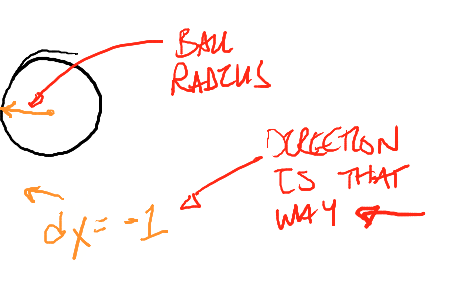 BALL
RADIUS
DIRECTION
IS THAT
WAY
dx = -1